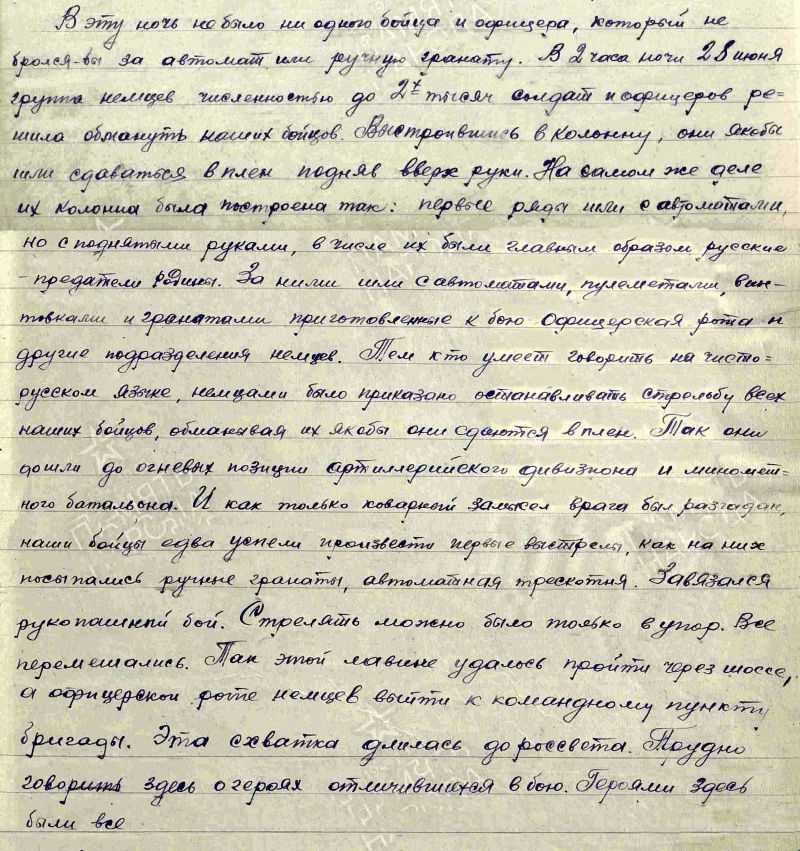 В эту ночь не было ни одного бойца и офицера, который не
брался-бы за автомат или ручную гранату. В 2 часа ночи 28 июня
группа немцев численностью до 2х тысяч солдат и офицеров ре=
шила обмануть наших бойцов. Выстроившись в колонну, они якобы
шли сдаваться в плен подняв вверх руки. На самом же деле
их колонна была построена так: первые ряды шли с автоматами,
но с поднятыми руками, в числе их были главным образом русские
- предатели Родины. За ними шли с автоматами, пулеметами, вин-
товками и гранатами приготовленные к бою офицерская рота и
другие подразделения немцев. Тем кто умеет говорить на чисто=
русском языке, немцами было приказано останавливать стрельбу всех
наших бойцов, обманывая их якобы они сдаются в плен. Так они
дошли до огневых позиции артиллерийского дивизиона и миномет-
ного батальона. И как только коварный замысел врага был разгадан,
наши бойцы едва успели произвести первые выстрелы, как на них
посыпались ручные гранаты, автоматная трескотня. Завязался
рукопашный бой. Стрелять можно было только в упор. Все
перемешались. Так этой лавине удалось пройти через шоссе,
а офицерской роте немцев выйти к командному пункту
бригады. Эта схватка длилась до россвета. Трудно
говорить здесь о героях отличившихся в бою. Героями здесь
были все